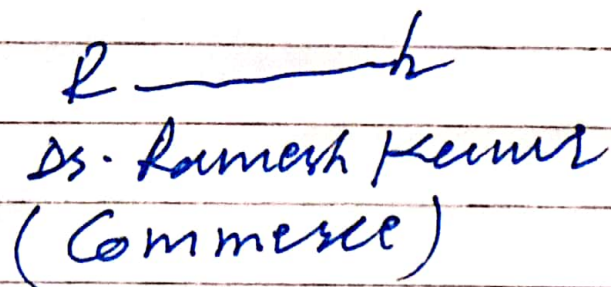 R——h
Dr. Ramesh Kumar
(Commerce)